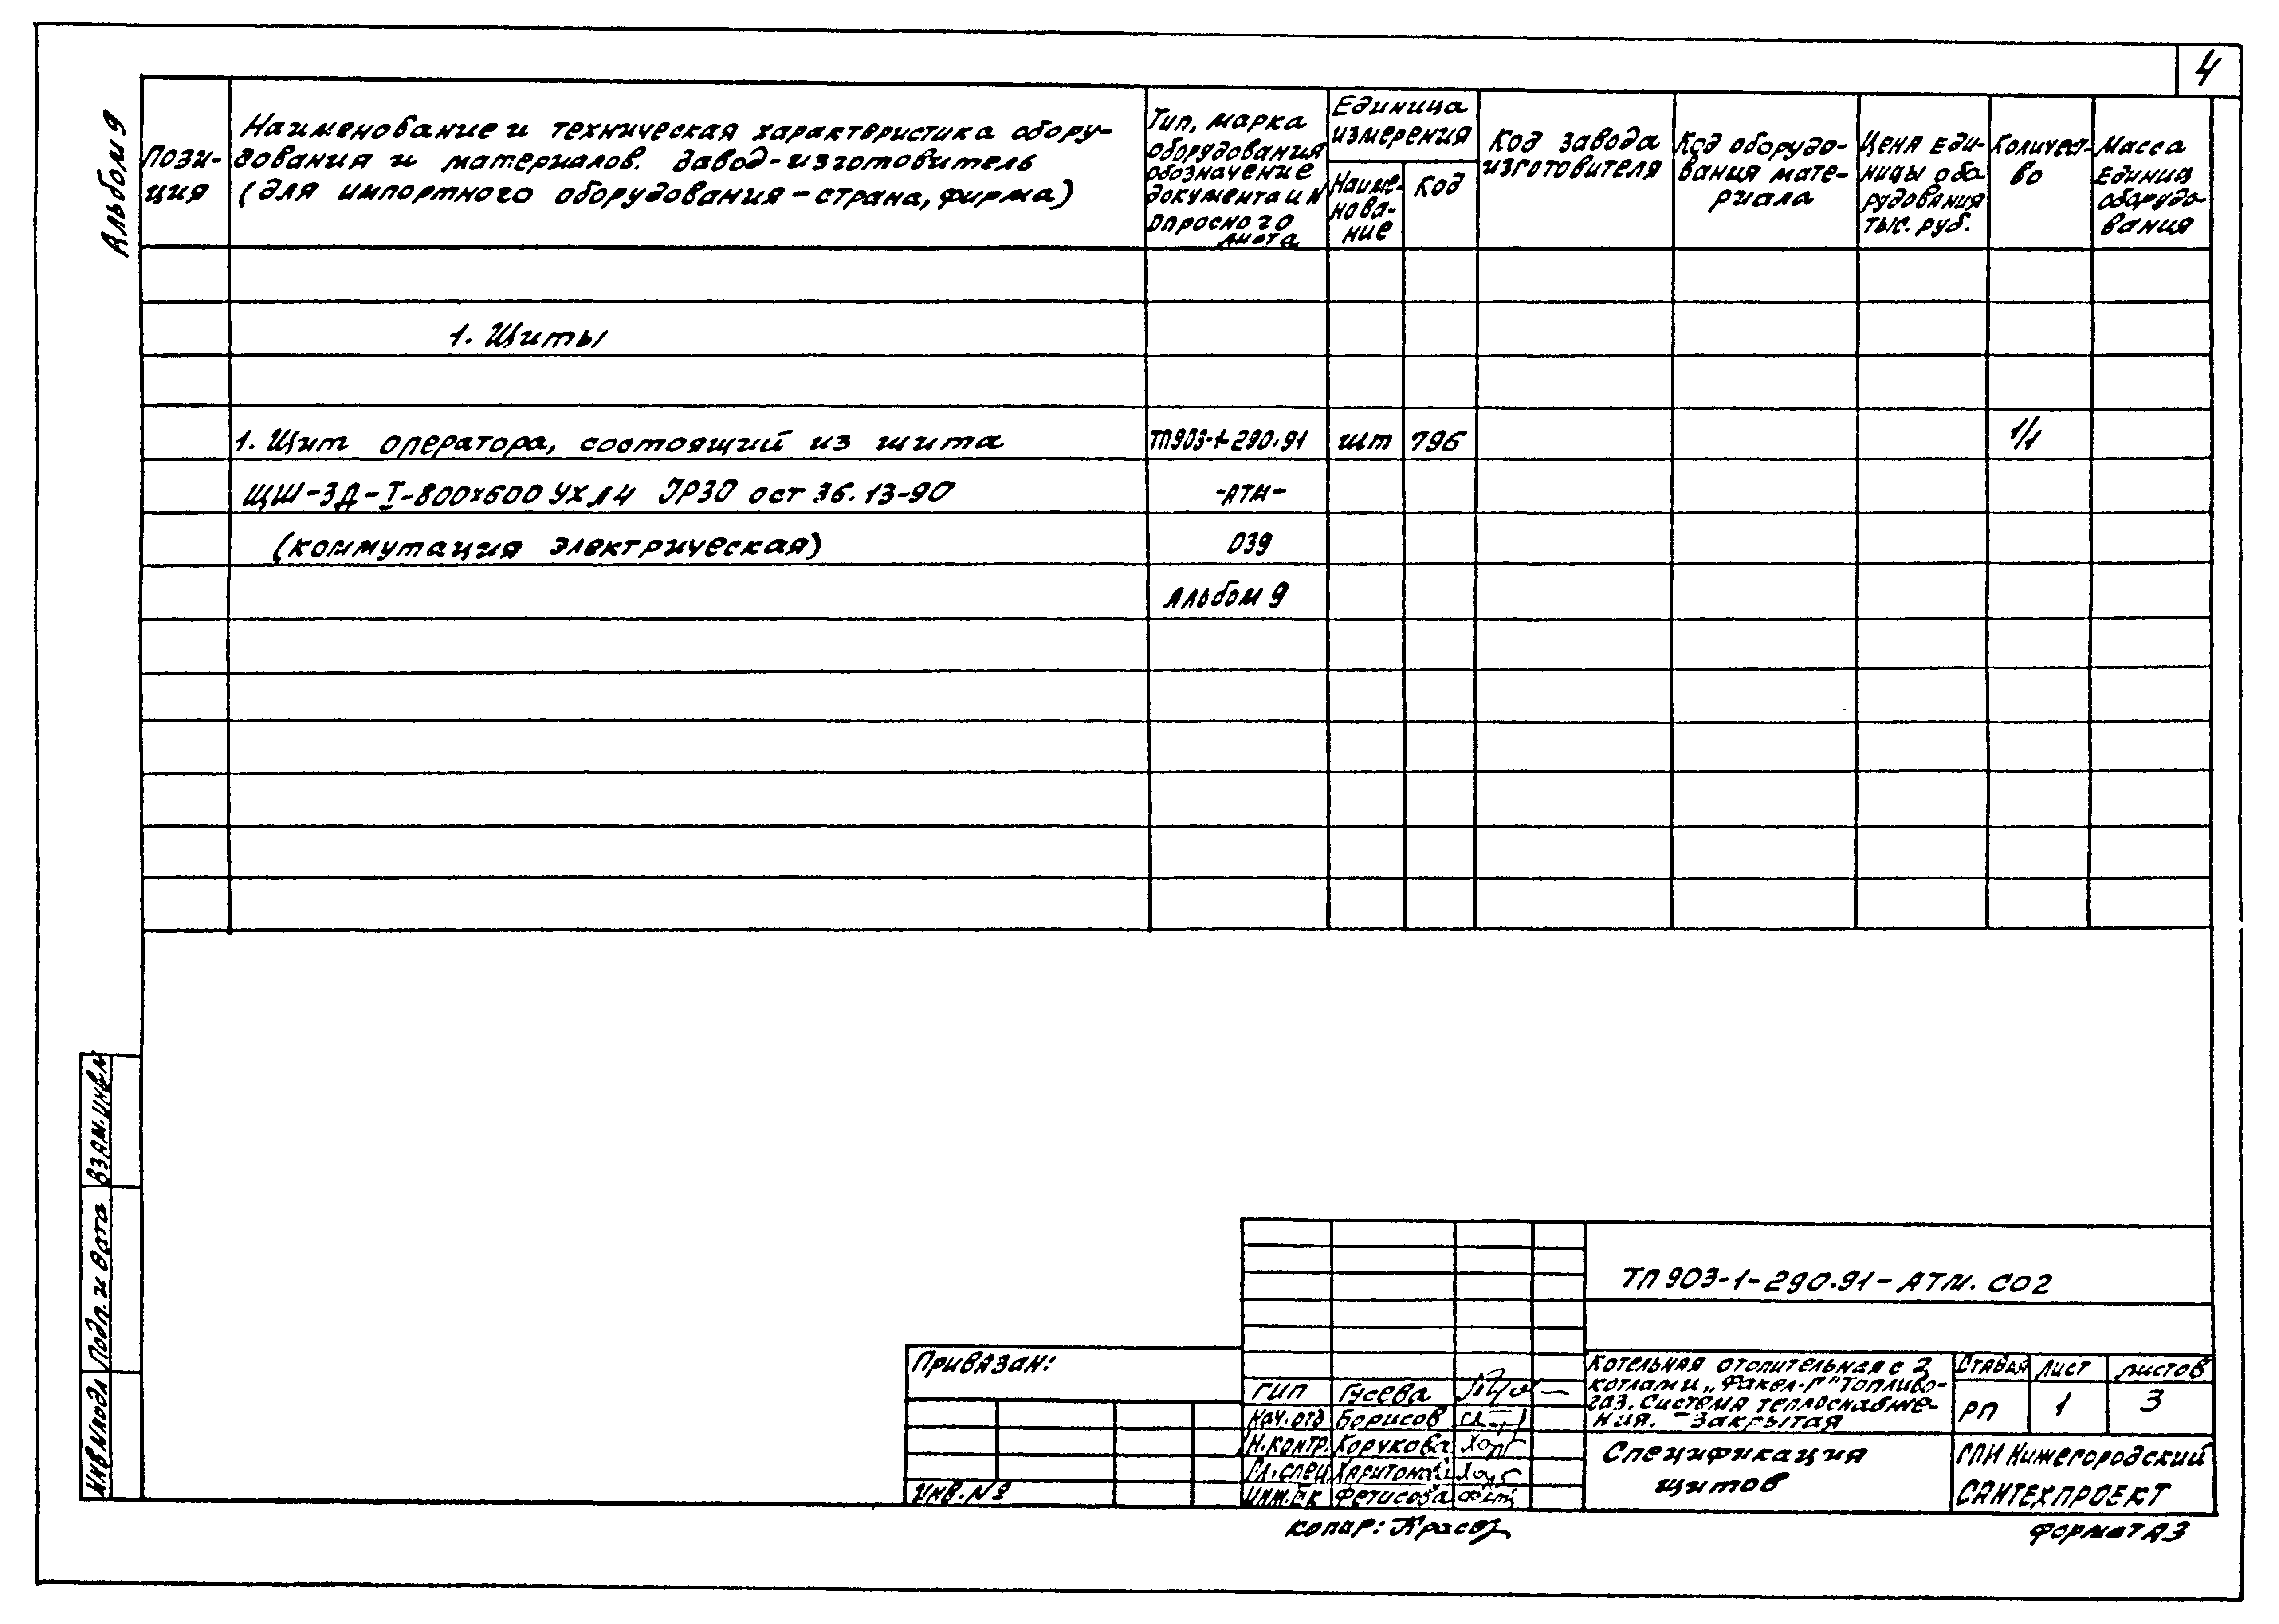 4
Альбом 9
Пози-
ция
Наименование и техническая характеристика обору-
дования и материалов. Завод-изготовитель
(для импортного оборудования-страна, фирма)
Тип, марка
оборудования
обозначение
документа и N
опросного
листа
Единица
измерения
Наиме-
нова-
ние
Код
Код завода
изготовителя
Код оборудо-
вания мате-
риала
Цена еди-
ницы обо
рудования
тыс. руб.
Количест-
во
Масса
единиц
оборудо-
вания
1. Щиты
1. Щит оператора, состоящий из щита ТП903-1-290.91 шт 796 1/1
ЩШ-ЗД-I-800х600 УХЛ4 IP30 ост 36.13-90 -АТМ-
(коммутация электрическая) 039
Альбом 9
Взам.инв.N
Подп. и дата
Инв.N подл
ТП 903-1-290.91-АТМ. СО2
Привязан:
Инв. N°
ГИП Гусева
Нач.отд Борисов
Н.контр. Корукова
Гл.спец Харитонов
Инж.IIк Фетисова
Котельная отопительная с 2
котлами „Факел-Г" Топливо-
газ. Система теплоснабже-
ния. -Закрытая
Стадия Лист Листов
РП 1 3
Спецификация
щитов
ГПИ Нижегородский
САНТЕХПРОЕКТ
Копир:
Формат А3